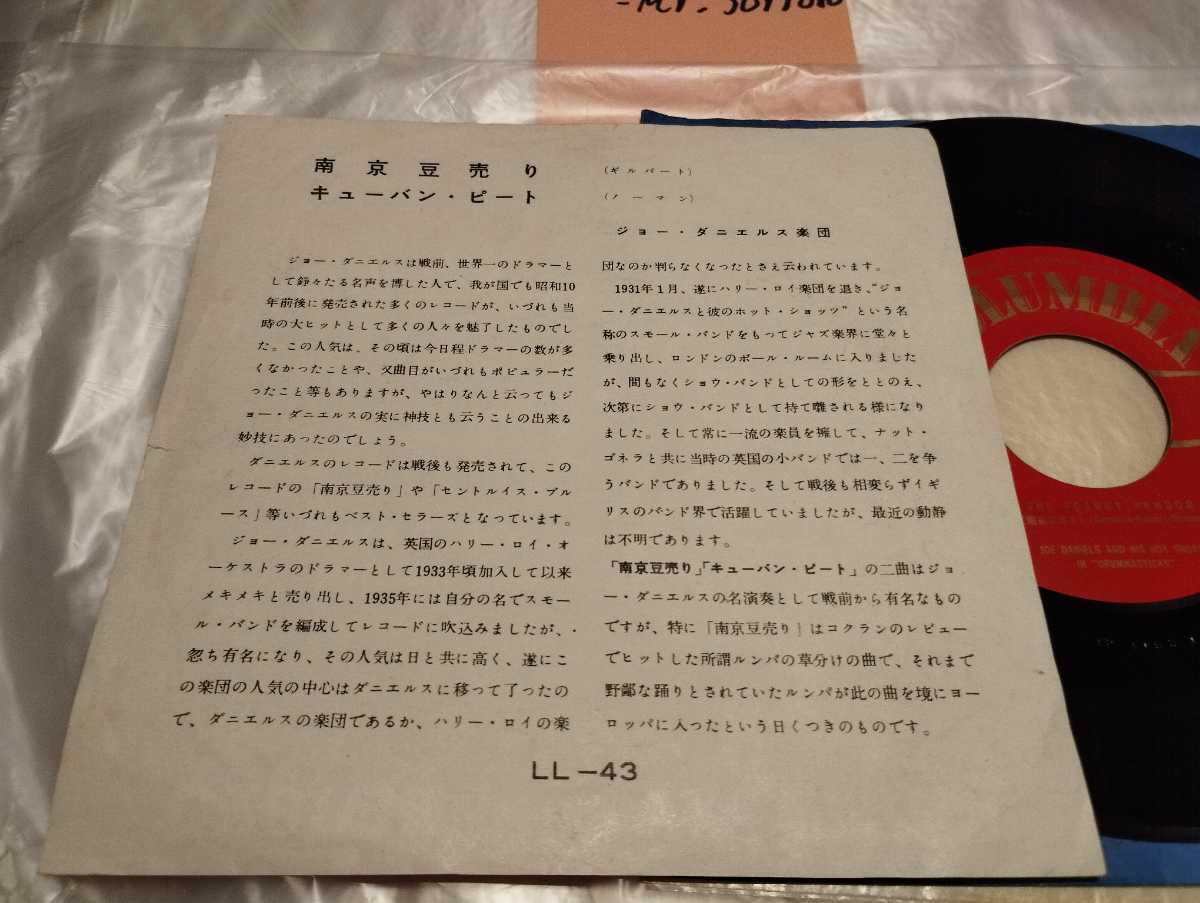 南京豆売り
キューバン・ピート
(ギルバート)
(ノーマン)
ジョー・ダニエルス楽団
ジョー・ダニエルスは戦前、世界一のドラマーと
して錚々たる名声を博した人で、我が国でも昭和10
年前後に発売された多くのレコードが、いづれも当
時の大ヒットとして多くの人々を魅了したものでし
た。この人気は、その頃は今日程ドラマーの数が多
くなかったことや、又曲目がいづれもポピュラーだ
ったこと等もありますが、やはりなんと云ってもジ
ョー・ダニエルスの実に神技とも云うことの出来る
妙技にあったのでしょう。
ダニエルスのレコードは戦後も発売されて、この
レコードの「南京豆売り」や「セントルイス・ブル
ース」等いづれもベスト・セラーズとなっています。
ジョー・ダニエルスは、英国のハリー・ロイ・オ
ーケストラのドラマーとして1933年頃加入して以来
メキメキと売り出し、1935年には自分の名でスモー
ル・バンドを編成してレコードに吹込みましたが、
忽ち有名になり、その人気は日と共に高く、遂にこ
の楽団の人気の中心はダニエルスに移って了ったの
で、ダニエルスの楽団であるか、ハリー・ロイの楽
団なのか判らなくなったとさえ云われています。
1931年1月、遂にハリー・ロイ楽団を退き、“ジョ
ー・ダニエルスと彼のホット・ショッツ”という名
称のスモール・バンドをもってジャズ楽界に堂々と
乗り出し、ロンドンのボール・ルームに入りました
が、間もなくショウ・バンドとしての形をととのえ、
次第にショウ・バンドとして持て囃される様になり
ました。そして常に一流の楽員を擁して、ナット・
ゴネラと共に当時の英国の小バンドでは一、二を争
うバンドでありました。そして戦後も相変らずイギ
リスのバンド界で活躍していましたが、最近の動静
は不明であります。
「南京豆売り」「キューバン・ピート」の二曲はジョ
ー・ダニエルスの名演奏として戦前から有名なもの
ですが、特に「南京豆売り」はコクランのレビュー
でヒットした所謂ルンバの草分けの曲で、それまで
野鄙な踊りとされていたルンバが此の曲を境にヨー
ロッパに入ったという曰くつきのものです。
LL-43
JOE DANIELS AND HIS HOT
IN "DRUMNASTICKS"